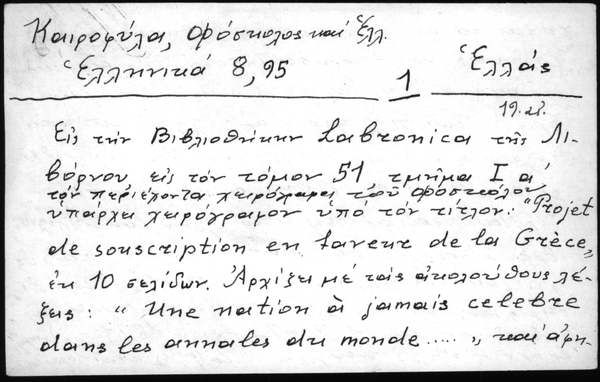 Καιροφύλα, Φόσκολος καί Ἑλλ.
Ἑλληνικά 8, 95
1
Ἑλλάς
Εἰς τήν Βιβλιοθήκην Labronica τῆς Λι-
βόρνου εἰς τόν τόμον 51 τμῆμα I α΄
τόν περιέχοντα χειρόγραφα τοῦ Φοσκόλου
ὑπάρχει χειρόγραφον ὑπό τόν τίτλον: "Projet
de souscription en faveur de la Grèce„
ἐκ 10 σελίδων. Ἀρχίζει μέ τάς ἀκολούθους λέ-
ξεις: "Une nation à jamais celebre
dans les annales du monde.....„ καί ἀφη-